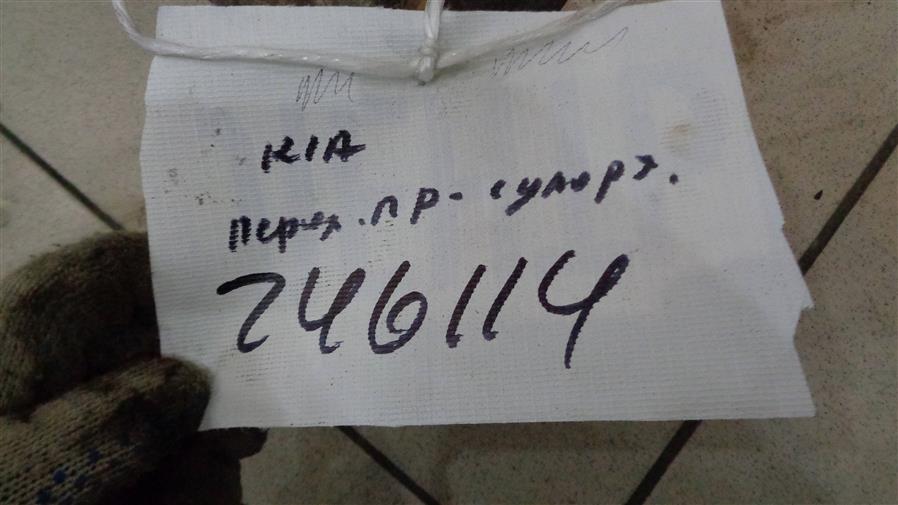 KIA
перех. пр- супорт.
246114